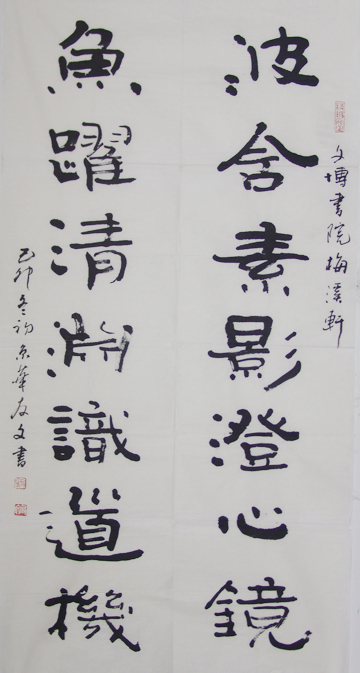 文博書院梅溪軒
波含素影澄心鏡
魚躍清淵識道機
己卯冬初京華友文書